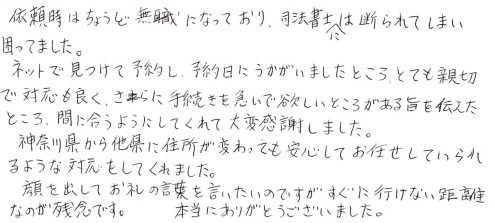 依頼時はちょうど無職になっており、司法書士には断られてしまい
困ってました。
ネットで見つけて予約し、予約日にうかがいましたところ、とても親切
で対応も良く、さらに手続きを急いで欲しいところがある旨を伝えた
ところ、間に合うようにしてくれて大変感謝しました。
神奈川県から他県に住所が変わっても安心してお任せしていられ
るような対応をしてくれました。
顔を出してお礼の言葉を言いたいのですがすぐに行けない距離
なのが残念です。 本当にありがとうございました。